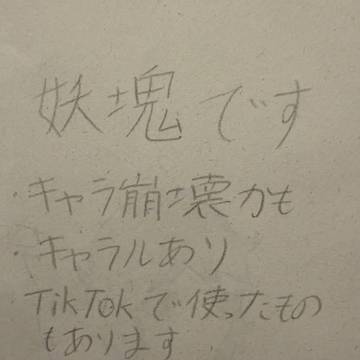 妖塊です
・キャラ崩壊かも
・キャラルあり
TikTokで使ったもの
もあります